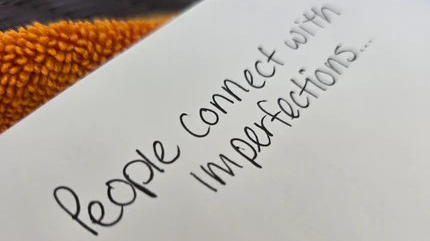 People Connect with
Imperfections...